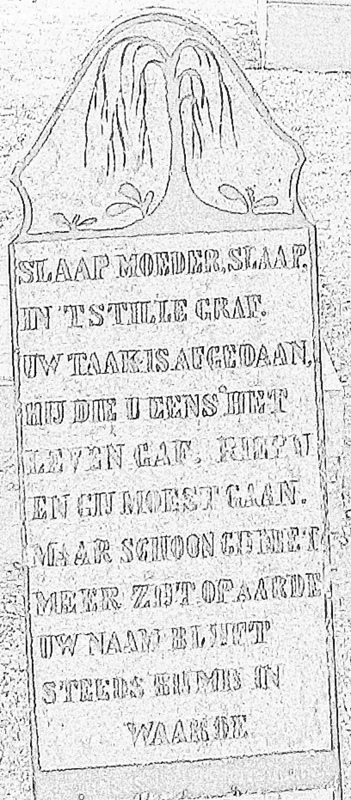 SLAAP MOEDER, SLAAP,
IN 'T STILLE GRAF.
UW TAAK IS AFGEDAAN,
HIJ DIE U EENS HET
LEVEN GAF, RIEP U
EN GIJ MOEST GAAN.
MAAR SCHOON GIJ NIET
MEER ZIJT OP AARDE
UW NAAM BLIJFT
STEEDS BIJ MIJ IN
WAARDE